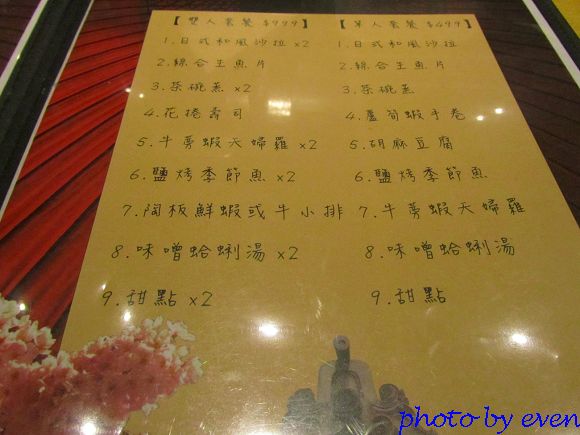 【雙人套餐 $999】
1.日式和風沙拉 x2
2.綜合生魚片
3.茶碗蒸 x2
4.花捲壽司
5.牛蒡蝦天婦羅 x2
6.鹽烤季節魚 x2
7.陶板鮮蝦或牛小排
8.味噌蛤蜊湯 x2
9.甜點 x2
【單人套餐 $499】
1.日式和風沙拉
2.綜合生魚片
3.茶碗蒸
4.蘆筍蝦手卷
5.胡麻豆腐
6.鹽烤季節魚
7.牛蒡蝦天婦羅
8.味噌蛤蜊湯
9.甜點
photo by even